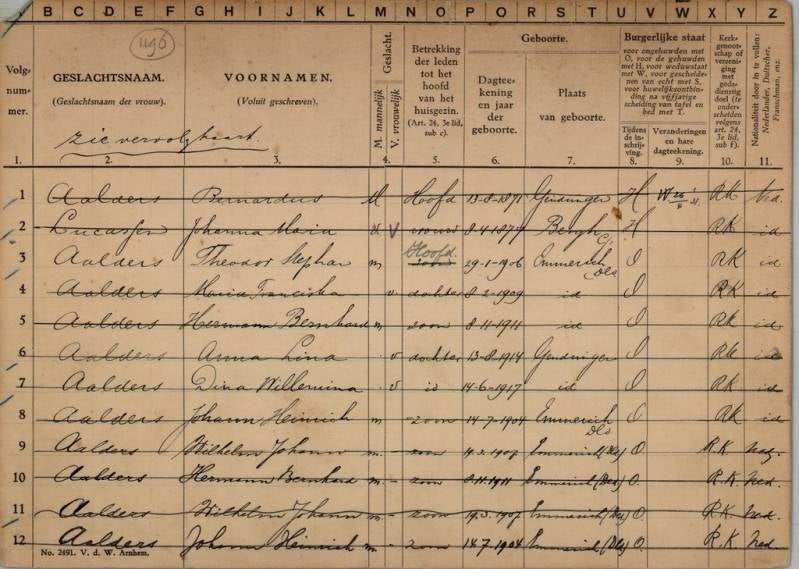 B C D E F G H I J K L M N O P Q R S T U V W X Y Z
Volgnummer.
1.
496
GESLACHTSNAAM.
(Geslachtsnaam der vrouw).
zie vervolgkaart.
2.
VOORNAMEN.
(Voluit geschreven).
3.
Geslacht.
M. mannelijk
V. vrouwelijk
4.
Betrekking
der leden
tot het
hoofd
van het
huisgezin.
(Art. 24, 3e lid,
sub c).
5.
Geboorte.
Dagteekening
en jaar
der
geboorte.
6.
Plaats
van geboorte.
7.
Burgerlijke staat
voor ongehuwden met
O, voor de gehuwden
met H, voor weduwstaat
met W, voor gescheidenen
van echt met S,
voor huwelijksontbinding
na vijfjarige
scheiding van tafel en
bed met T.
Tijdens
de inschrijving.
8.
Veranderingen
en hare
dagteekening.
9.
Kerkgenootschap
of vereeniging
met
godsdienstig
doel (te onderscheiden
volgens
art. 24,
3e lid,
sub f).
10.
Nationaliteit door in te vullen:
Nederlander, Duitscher,
Franschman, enz.
11.
1 Aalders Bernardus M Hoofd 13-8-1871 Gendringen H W RK Ned.
2 Lucassen Johanna Maria V vrouw 8-4-1877 Bergh H RK id
3 Aalders Theodor Stephan m zoon Hoofd 29-1-1906 Emmerich Dld O RK id
4 Aalders Maria Franciska v dochter 8-2-1909 id O RK id
5 Aalders Hermann Bernhard m zoon 8-11-1911 id O RK id
6 Aalders Anna Lina v dochter 13-8-1914 Gendringen O RK id
7 Aalders Dina Willemina v id 14-6-1917 id O RK id
8 Aalders Johann Heinrich m zoon 14-7-1904 Emmerich Dld O RK id
9 Aalders Wilhelm Johann m. zoon 1907 Emmerich (Dld) O. R.K. Ned.
10 Aalders Hermann Bernhard m - zoon 8.11.1911 Emmerich (Dld) O. R.K. Ned.
11 Aalders Wilhelm Johann m - zoon 19.3.1907 Emmerich (Dld) O. R.K. Ned.
12 Aalders Johann Heinrich m - zoon 14.7.1904 Emmerich (Dld) O. R.K. Ned.
No. 2491. V. d. W. Arnhem.